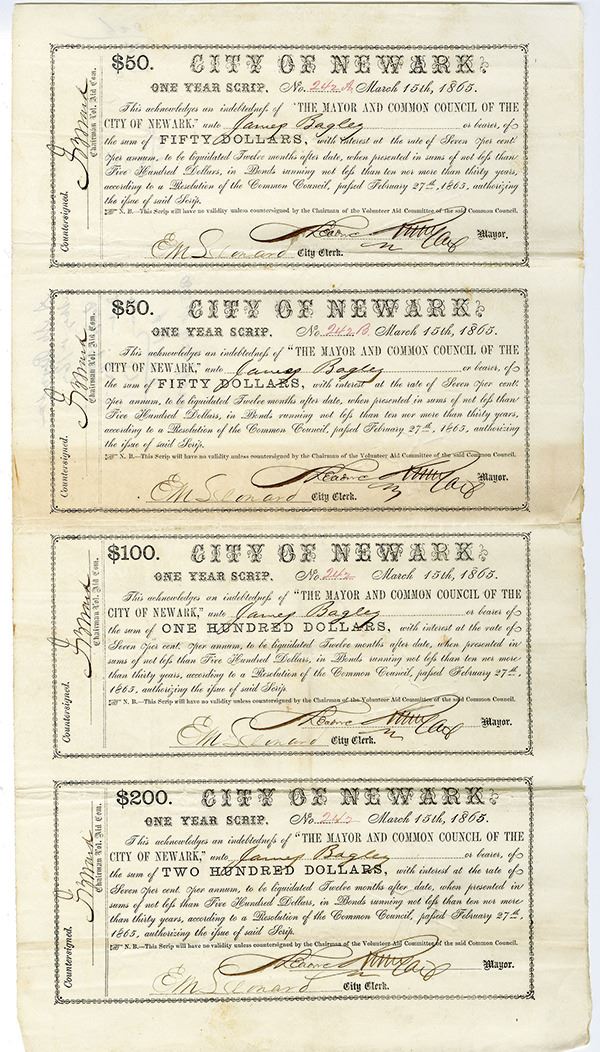 $50. CITY OF NEWARK.
ONE YEAR SCRIP. No. 242 A March 15th, 1865.
This acknowledges an indebtedness of "THE MAYOR AND COMMON COUNCIL OF THE
CITY OF NEWARK," unto James Bagley or bearer, of
the sum of FIFTY DOLLARS, with interest at the rate of Seven per cent.
per annum, to be liquidated Twelve months after date, when presented in sums of not less than
Five Hundred Dollars, in Bonds running not less than ten nor more than thirty years,
according to a Resolution of the Common Council, passed February 27th, 1865, authorizing
the issue of said Scrip.
N. B.—This Scrip will have no validity unless countersigned by the Chairman of the Volunteer Aid Committee of the said Common Council.
Mayor.
E M Leonard City Clerk.
Countersigned.
Chairman Vol. Aid Com.
$50. CITY OF NEWARK.
ONE YEAR SCRIP. No. 242 B March 15th, 1865.
This acknowledges an indebtedness of "THE MAYOR AND COMMON COUNCIL OF THE
CITY OF NEWARK," unto James Bagley or bearer, of
the sum of FIFTY DOLLARS, with interest at the rate of Seven per cent.
per annum, to be liquidated Twelve months after date, when presented in sums of not less than
Five Hundred Dollars, in Bonds running not less than ten nor more than thirty years,
according to a Resolution of the Common Council, passed February 27th, 1865, authorizing
the issue of said Scrip.
N. B.—This Scrip will have no validity unless countersigned by the Chairman of the Volunteer Aid Committee of the said Common Council.
Mayor.
E M Leonard City Clerk.
Countersigned.
Chairman Vol. Aid Com.
$100. CITY OF NEWARK.
ONE YEAR SCRIP. No. 242 March 15th, 1865.
This acknowledges an indebtedness of "THE MAYOR AND COMMON COUNCIL OF THE
CITY OF NEWARK," unto James Bagley or bearer of
the sum of ONE HUNDRED DOLLARS, with interest at the rate of
Seven per cent. per annum, to be liquidated Twelve months after date, when presented in
sums of not less than Five Hundred Dollars, in Bonds running not less than ten nor more
than thirty years, according to a Resolution of the Common Council, passed February 27th,
1865, authorizing the issue of said Scrip.
N. B.—This Scrip will have no validity unless countersigned by the Chairman of the Volunteer Aid Committee of the said Common Council.
Mayor.
E M Leonard City Clerk.
Countersigned.
Chairman Vol. Aid Com.
$200. CITY OF NEWARK.
ONE YEAR SCRIP. No. March 15th, 1865.
This acknowledges an indebtedness of "THE MAYOR AND COMMON COUNCIL OF THE
CITY OF NEWARK," unto James Bagley or bearer, of
the sum of TWO HUNDRED DOLLARS, with interest at the rate of
Seven per cent. per annum, to be liquidated Twelve months after date, when presented in
sums of not less than Five Hundred Dollars, in Bonds running not less than ten nor more
than thirty years, according to a Resolution of the Common Council, passed February 27th,
1865, authorizing the issue of said Scrip.
N. B.—This Scrip will have no validity unless countersigned by the Chairman of the Volunteer Aid Committee of the said Common Council.
Mayor.
E M Leonard City Clerk.
Countersigned.
Chairman Vol. Aid Com.